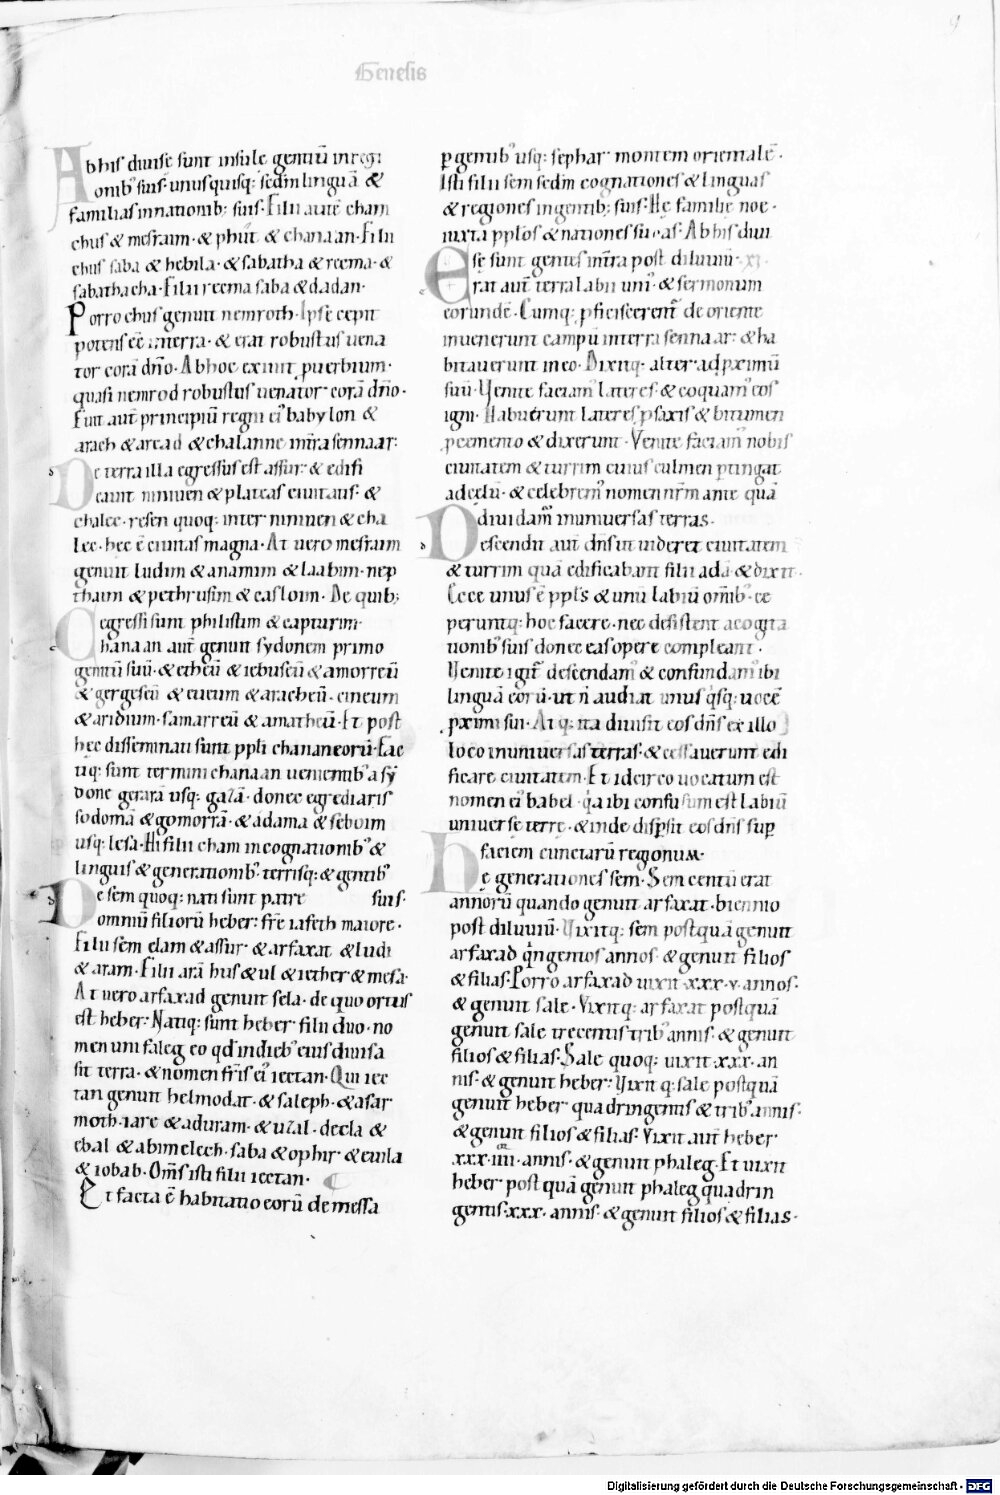 Genesis
Ab his diuise sunt insule gentiū in regi
onibꝰ suis. unusquisq; sedm linguā &
familias in nationib; suis. Filii autē cham
chus & mesraim. & phut & chanaan. Filii
chus saba & hebila. & sabatha & reema. &
sabathacha. Filii reema saba & dadan.
Porro chus genuit nemroth. Ipse cepit
potens eē in terra. & erat robustus uena
tor corā dn̄o. Ab hoc exiuit puerbium.
quasi nemrod robustus uenator corā dn̄o.
Fuit aut̄ principiū regni eiꝰ babylon &
arach & arcad & chalanne in t̄ra sennaar.
De terra illa egressus est assur. & edifi
cauit niniuen & plateas ciuitatis. &
chalec. resen quoq; inter niniuen & cha
lec. hec ē ciuitas magna. At uero mesraim
genuit ludim & anamim & laabim. nep
thaim & pethrusim & casloim. De quib;
egressi sunt philistim & capturim.
Chanaan aut̄ genuit sydonem primo
genitū suū. & etheū & iebuseū & amorreū
& gergeseū & eueum & aracheū. cineum
& aridium. samarreū & amatheū. Et post
hec disseminati sunt ppli chananeorū. Fac
tiq; sunt termini chanaan uenientibꝰ a sy
done gerarā usq; gazā. donec egrediaris
sodomā & gomorrā. & adama & seboim
usq; lesa. Hi filii cham in cognationibꝰ &
linguis & generationibꝰ terrisq; & gentibꝰ
suis.
De sem quoq; nati sunt patre
omniū filiorū heber. fr̄e iafeth maiore.
Filii sem elam & assur & arfaxat & ludi
& aram. Filii arā hus & ul & iether & mesa.
At uero arfaxad genuit sela. de quo ortus
est heber. Natiq; sunt heber filii duo. no
men uni faleg eo qd in diebꝰ eius diuisa
sit terra. & nomen fr̄is eiꝰ iectan. Qui iec
tan genuit helmodat. & saleph. & asar
moth. iare & aduram. & uzal. decla &
ebal & abimelech. saba & ophir & euila
& iobab. Om̄s isti filii iectan.
Et facta ē habitatio eorū de messa
ꝑgentibꝰ usq; sephar montem orientalē.
Isti filii sem sedm cognationes & linguas
& regiones in gentib; suis. He familie noe.
iuxta pplos & nationes suas. Ab his diui
se sunt gentes in t̄ra post diluuiū. xi.
Erat aut̄ terra labii uniꝰ & sermonum
eorundē. Cumq; pficiscerent̄ de oriente
inuenerunt campū in terra sennaar. & ha
bitauerunt in eo. Dixitq; alter ad pximū
suū. Venite faciamꝰ lateres. & coquamꝰ eos
igni. Habuerunt lateres p saxis & bitumen
p cemento & dixerunt. Venite faciamꝰ nobis
ciuitatem & turrim cuius culmen ꝑtingat
ad celū. & celebremꝰ nomen nr̄m ante quā
diuidamꝰ in uniuersas terras.
Descendit aut̄ dn̄s ut uideret ciuitatem
& turrim quā edificabant filii adā. & dixit.
Ecce unus ē ppls & unū labiū om̄ibꝰ. ce
peruntq; hoc facere. nec desistent a cogita
tionibꝰ suis donec eas opere compleant.
Venite igit̄ descendamꝰ & confundamꝰ ibi
linguā eorū. ut n̄ audiat unus qsq; uocē
pximi sui. Atq; ita diuisit eos dn̄s ex illo
loco in uniuersas terras. & cessauerunt edi
ficare ciuitatem. Et idcirco uocatum est
nomen eiꝰ babel. qa ibi confusum est labiū
uniuerse terre. & inde dispsit eos dn̄s sup
faciem cunctarū regionum.
He generationes sem. Sem centū erat
annorū quando genuit arfaxat. biennio
post diluuiū. Vixitq; sem postquā genuit
arfaxad qngentos annos. & genuit filios
& filias. Porro arfaxad uixit .xxx.v. annos.
& genuit sale. Vixitq; arfaxat postquā
genuit sale trecentis tribꝰ annis. & genuit
filios & filias. Sale quoq; uixit .xxx. an
nis. & genuit heber. Vixitq; sale postquā
genuit heber quadringentis & tribꝰ annis.
& genuit filios & filias. Vixit aut̄ heber
.xxx.iiii. annis. & genuit phaleg. Et uixit
heber postquā genuit phaleg quadrin
gentis .xxx. annis. & genuit filios & filias.
Digitalisierung gefördert durch die Deutsche Forschungsgemeinschaft - DFG